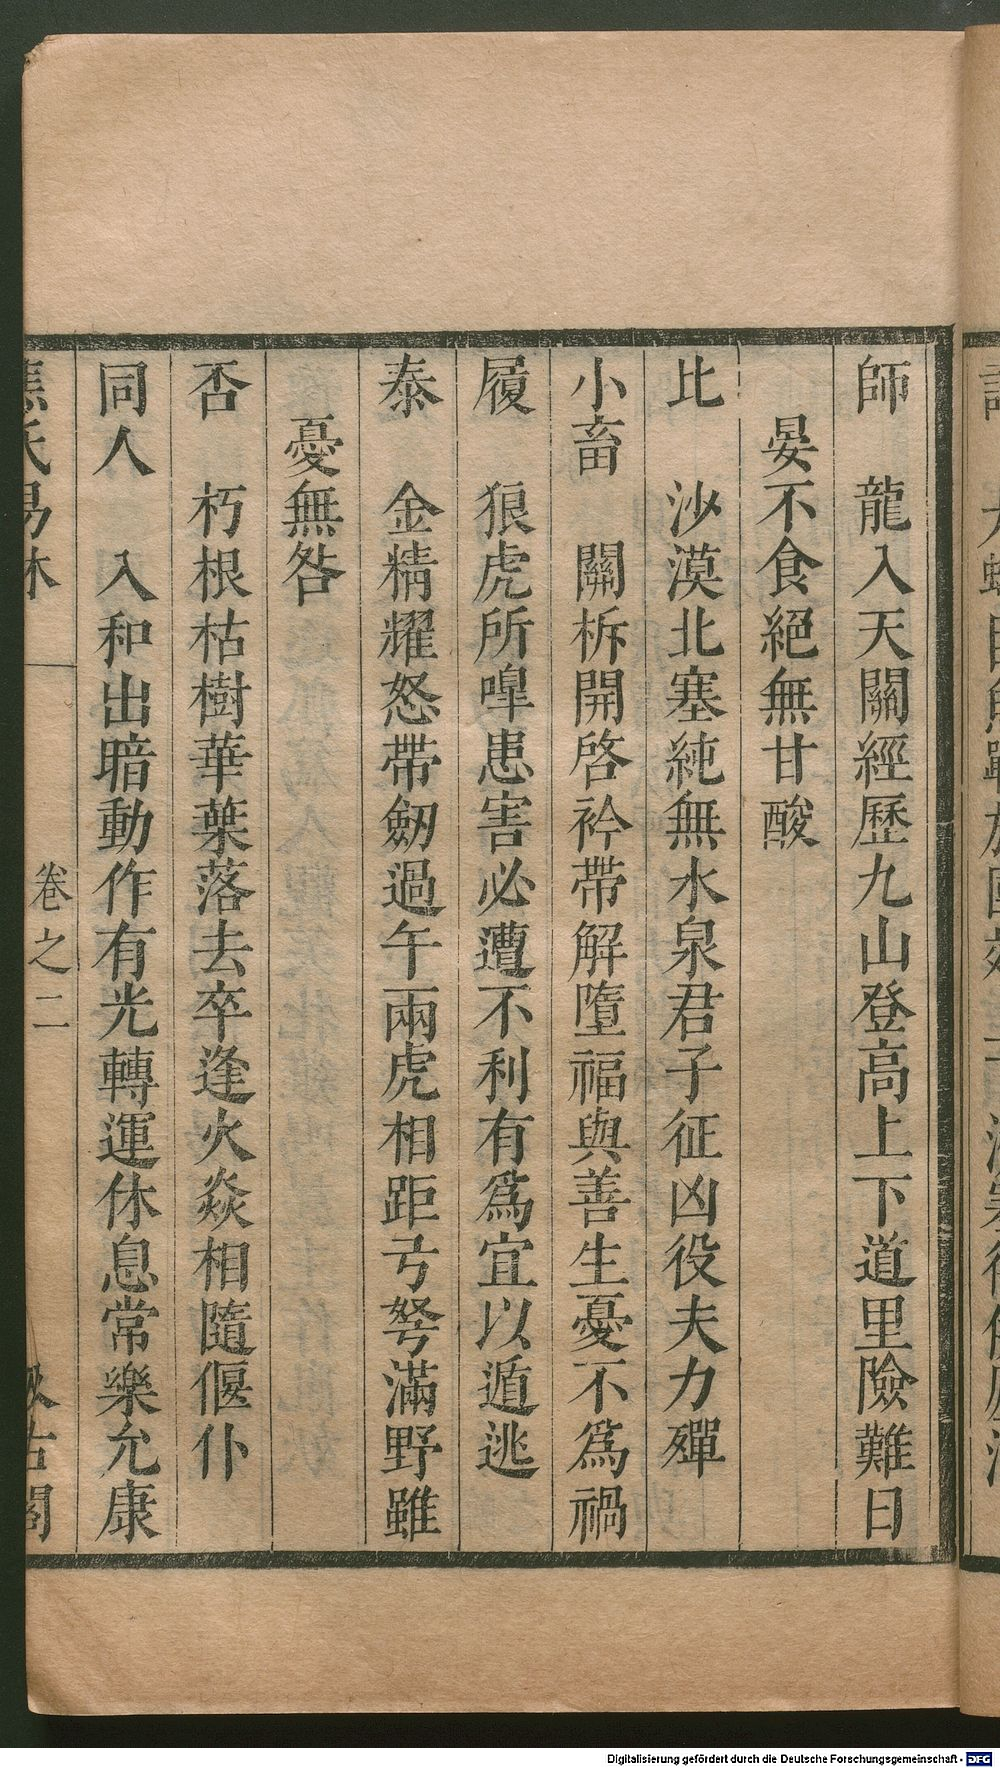 師　龍入天關經歷九山登高上下道里險難日
晏不食絕無甘酸
比　沙漠北塞純無水泉君子征凶役夫力殫
小畜　關柝開啓衿帶解墮福與善生憂不爲禍
履　狼虎所嘷患害必遭不利有爲宜以遁逃
泰　金精耀怒帶劒過午兩虎相距弓弩滿野雖
憂無咎
否　朽根枯樹華葉落去卒逢火焱相隨偃仆
同人　入和出暗動作有光轉運休息常樂允康
焦氏易林　卷之二　汲古閣
Digitalisierung gefördert durch die Deutsche Forschungsgemeinschaft - DFG